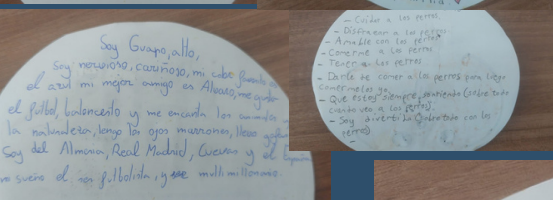 Soy Guapo, alto,
Soy nervioso, cariñoso, mi color favorito es
el azul mi mejor amigo es Alvaro, me gusta
el futbol, baloncesto y me encanta los animales
la naturaleza, tengo los ojos marrones, llevo
Soy del Almeria, Real Madrid, y el
sueño el ser futbolista, y ser multimillonario.
- Cuidar a los perros.
- Disfrazar a los perros.
- Amable con los perros
- Comerme a los perros
- Tener a los perros
- Darle de comer a los perros para luego
comermelos yo.
- Que estoy siempre sonriendo (sobre todo
cuando veo a los perros).
- Soy divertido (sobre todo con los
perros)